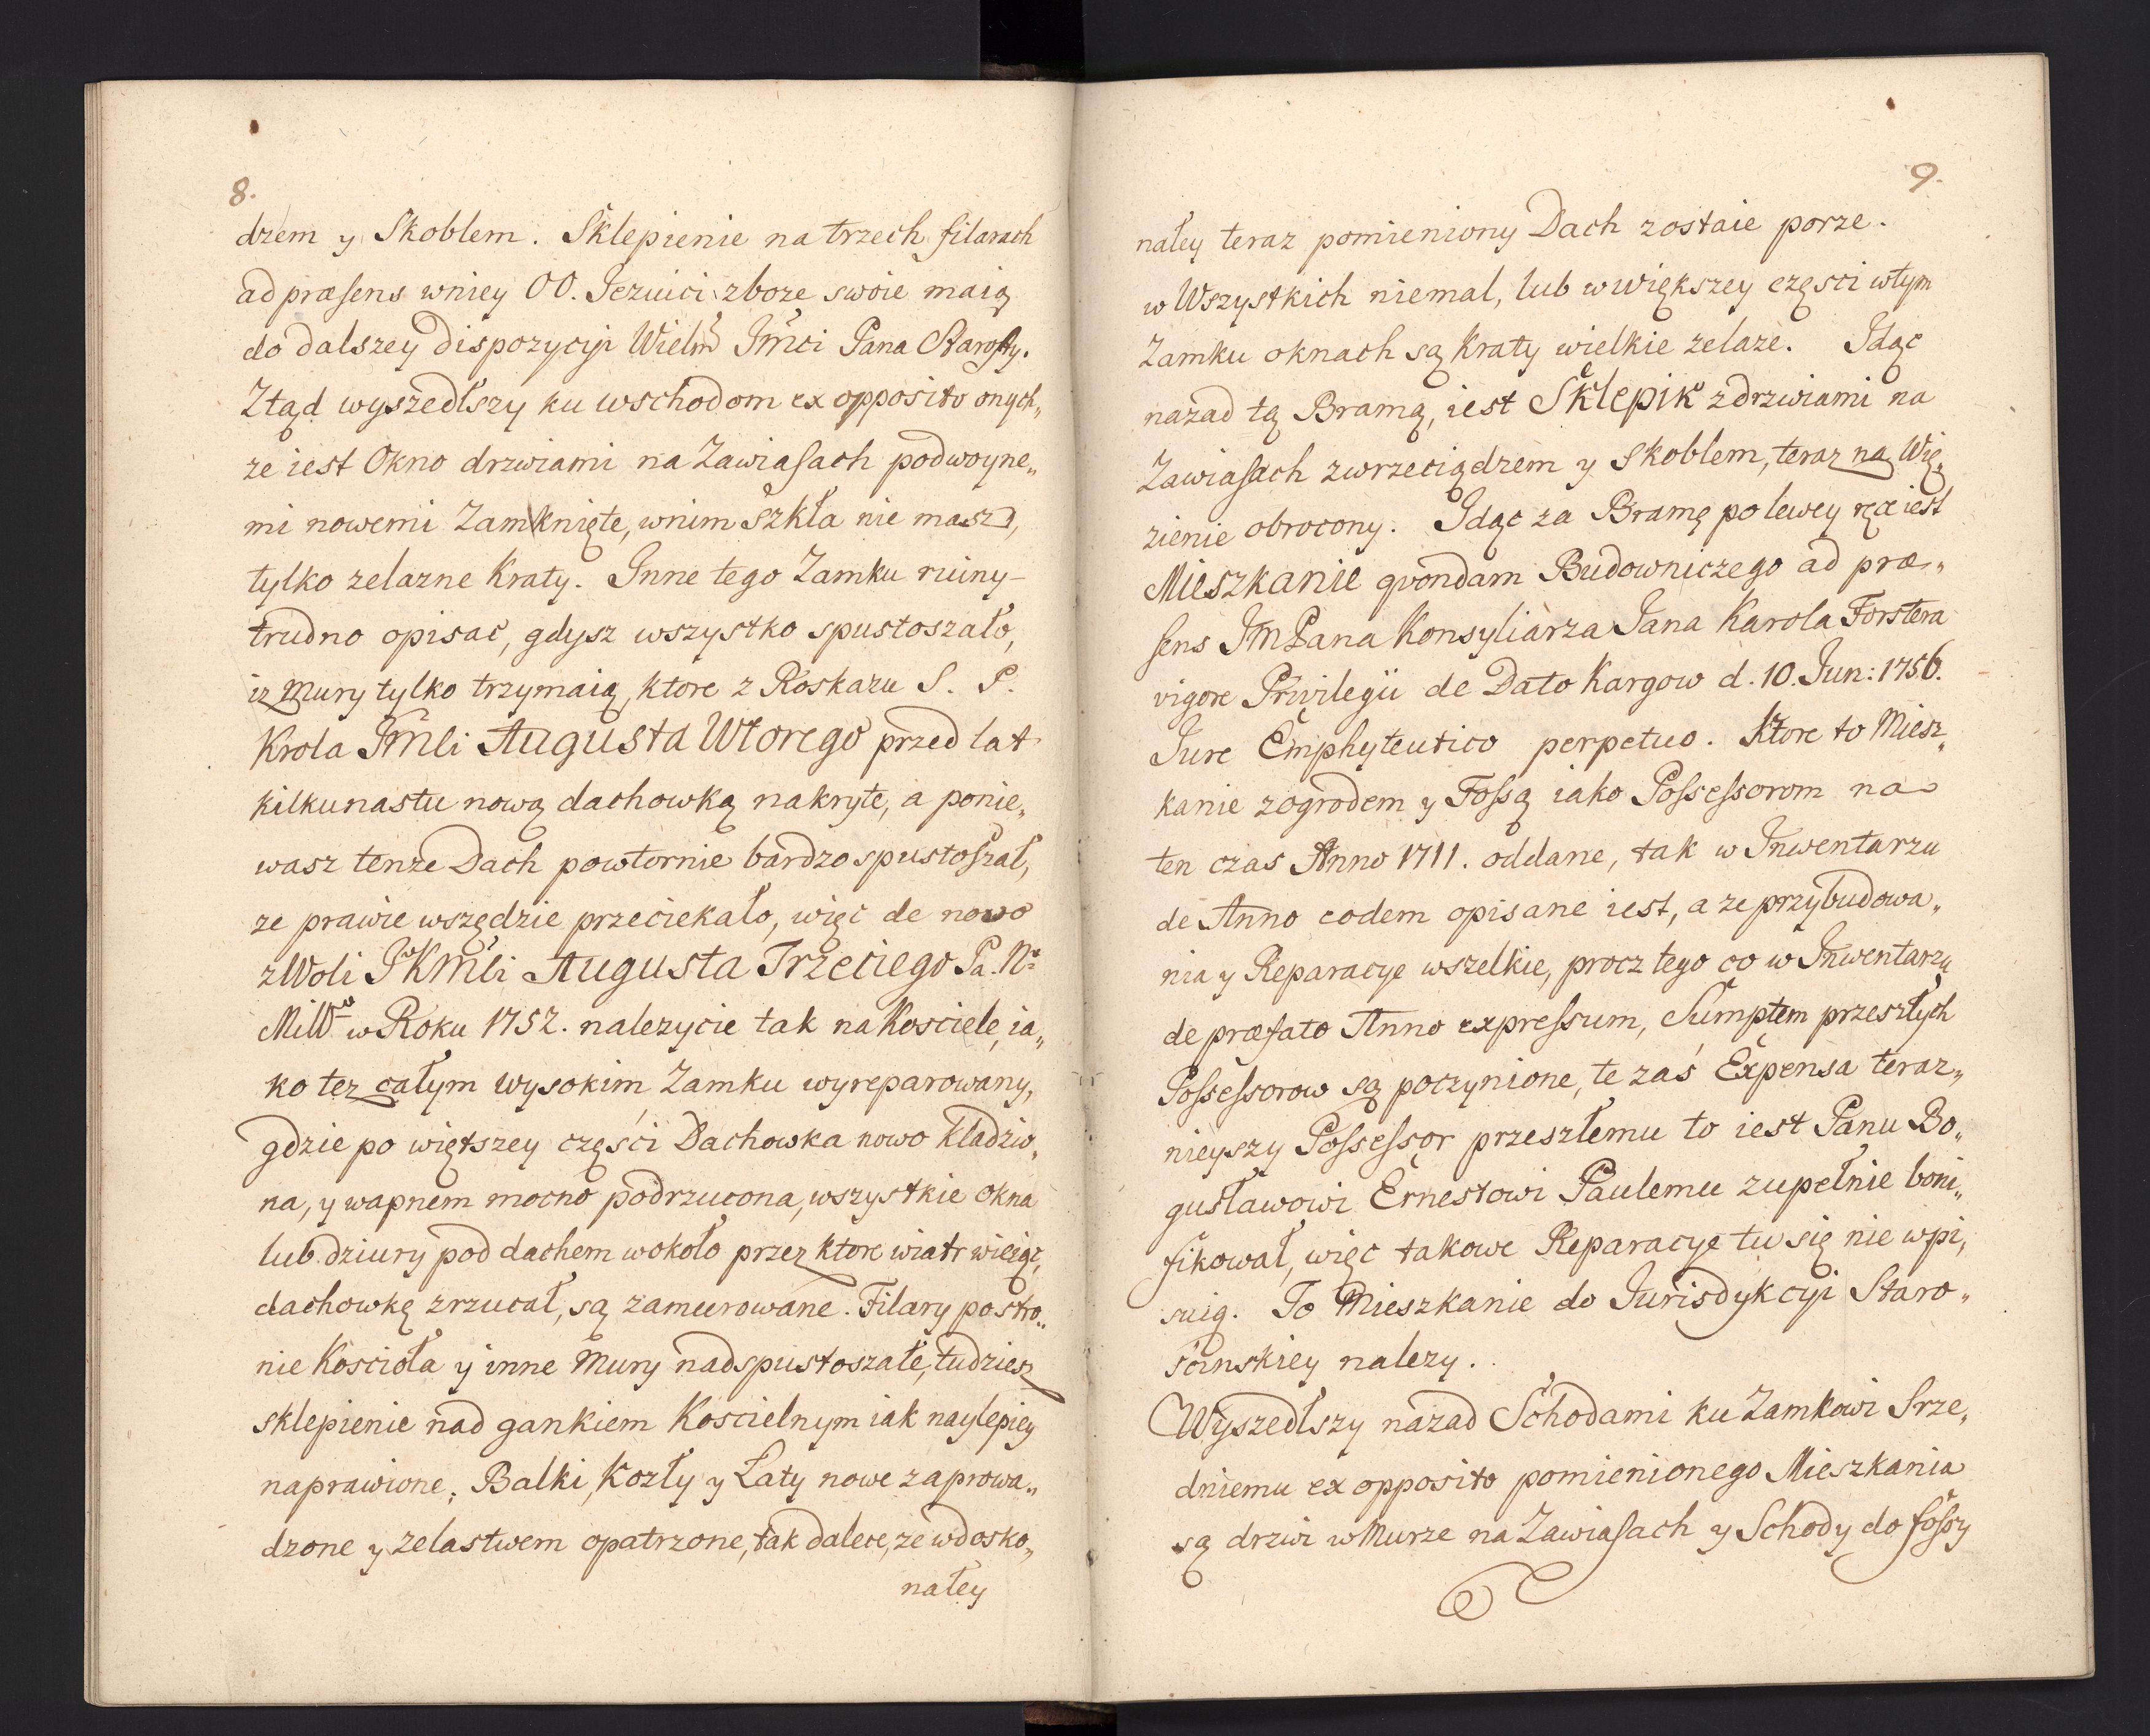 8.
dzem y Skoblem. Sklepienie na trzech filarach
ad præsens wniey OO. Iezuici zboze swoie maią
do dalszey dispozycyi Wielm̄ Jm̄ci Pana Starosty.
Ztąd wyszedłszy ku wschodom ex opposito onych„
ze iest Okno drzwiami na Zawiasach podwoyne„
mi nowemi Zamknięte, wnim szkła nie masz,
tylko zelazne Kraty. Inne tego Zamku ruiny-
trudno opisać, gdysz wszystko spustoszało,
iz Mury tylko trzymaią, ktore z Roskazu S. P.
Krola Jm̄li Augusta Wtorego przed lat
kilkunastu nową dachowką nakryte, a ponie„
wasz tenze Dach powtornie bardzo spustoszał,
ze prawie wszędzie przeciekało, więc de novo
z Woli JKm̄li Augusta Trzeciego Pa. Nº
Miłº w Roku 1752. nalezycie tak na Kosciele, ia„
ko tez całym wysokim Zamku wyreparowany,
gdzie po większey części Dachowka nowo kladzio„
na, y wapnem mocno podrzucona, wszystkie okna
lub dziury pod dachem wokoło przez ktore wiatr wieiąc,
dachowkę zrzucał, są zamurowane. Filary po stro„
nie Kościoła y inne Mury nadspustoszałe, tudziesz
sklepienie nad gankiem Koscielnym iak naylepiey
naprawione; Balki, Kozły y Łaty nowe zaprowa„
dzone y zelastwem opatrzone, tak dalece, ze wdosko„
nałey
9.
nałey teraz pomieniony Dach zostaie porze.
w Wszystkich niemal, lub wwiększey częsci wtym
Zamku oknach są Kraty wielkie zelaze. Idąc
nazad tą Bramą, iest Sklepik zdrzwiami na
Zawiasach zwrzeciądzem y Skoblem, teraz na Wię„
zienie obrocony. Idąc za Bramę po lewey ręce iest
Mieszkanie qvondam Budowniczego ad præ„
sens JmPana Konsyliarza Jana Karola Forstera
vigore Privilegii de Dato Kargow d. 10. Jun: 1756.
Jure Emphyteutico perpetuo. Ktore to Miesz„
kanie zogrodem y Fossą iako Possessorom na
ten czas Anno 1711. oddane, tak w Inwentarzu
de Anno eodem opisane iest, a ze przybudowa„
nia y Reparacye wszelkie, procz tego co w Inwentarzu
de præfato Anno expressum, Sumptem przeszłych
Possessorow są poczynione, te zaś Expensa teraz„
nieyszy Possessor przeszłemu to iest Panu Bo„
gusławowi Ernestowi Paulemu zupełnie boni„
fikował, więc takowe Reparacye tu się nie wpi„
suią. To Mieszkanie do Jurisdykcyi Staro„
scinskiey nalezy.
Wyszedłszy nazad Schodami ku Zamkowi Srze„
dniemu ex opposito pomienionego Mieszkania
są drzwi w Murze na Zawiasach y Schody do fossy